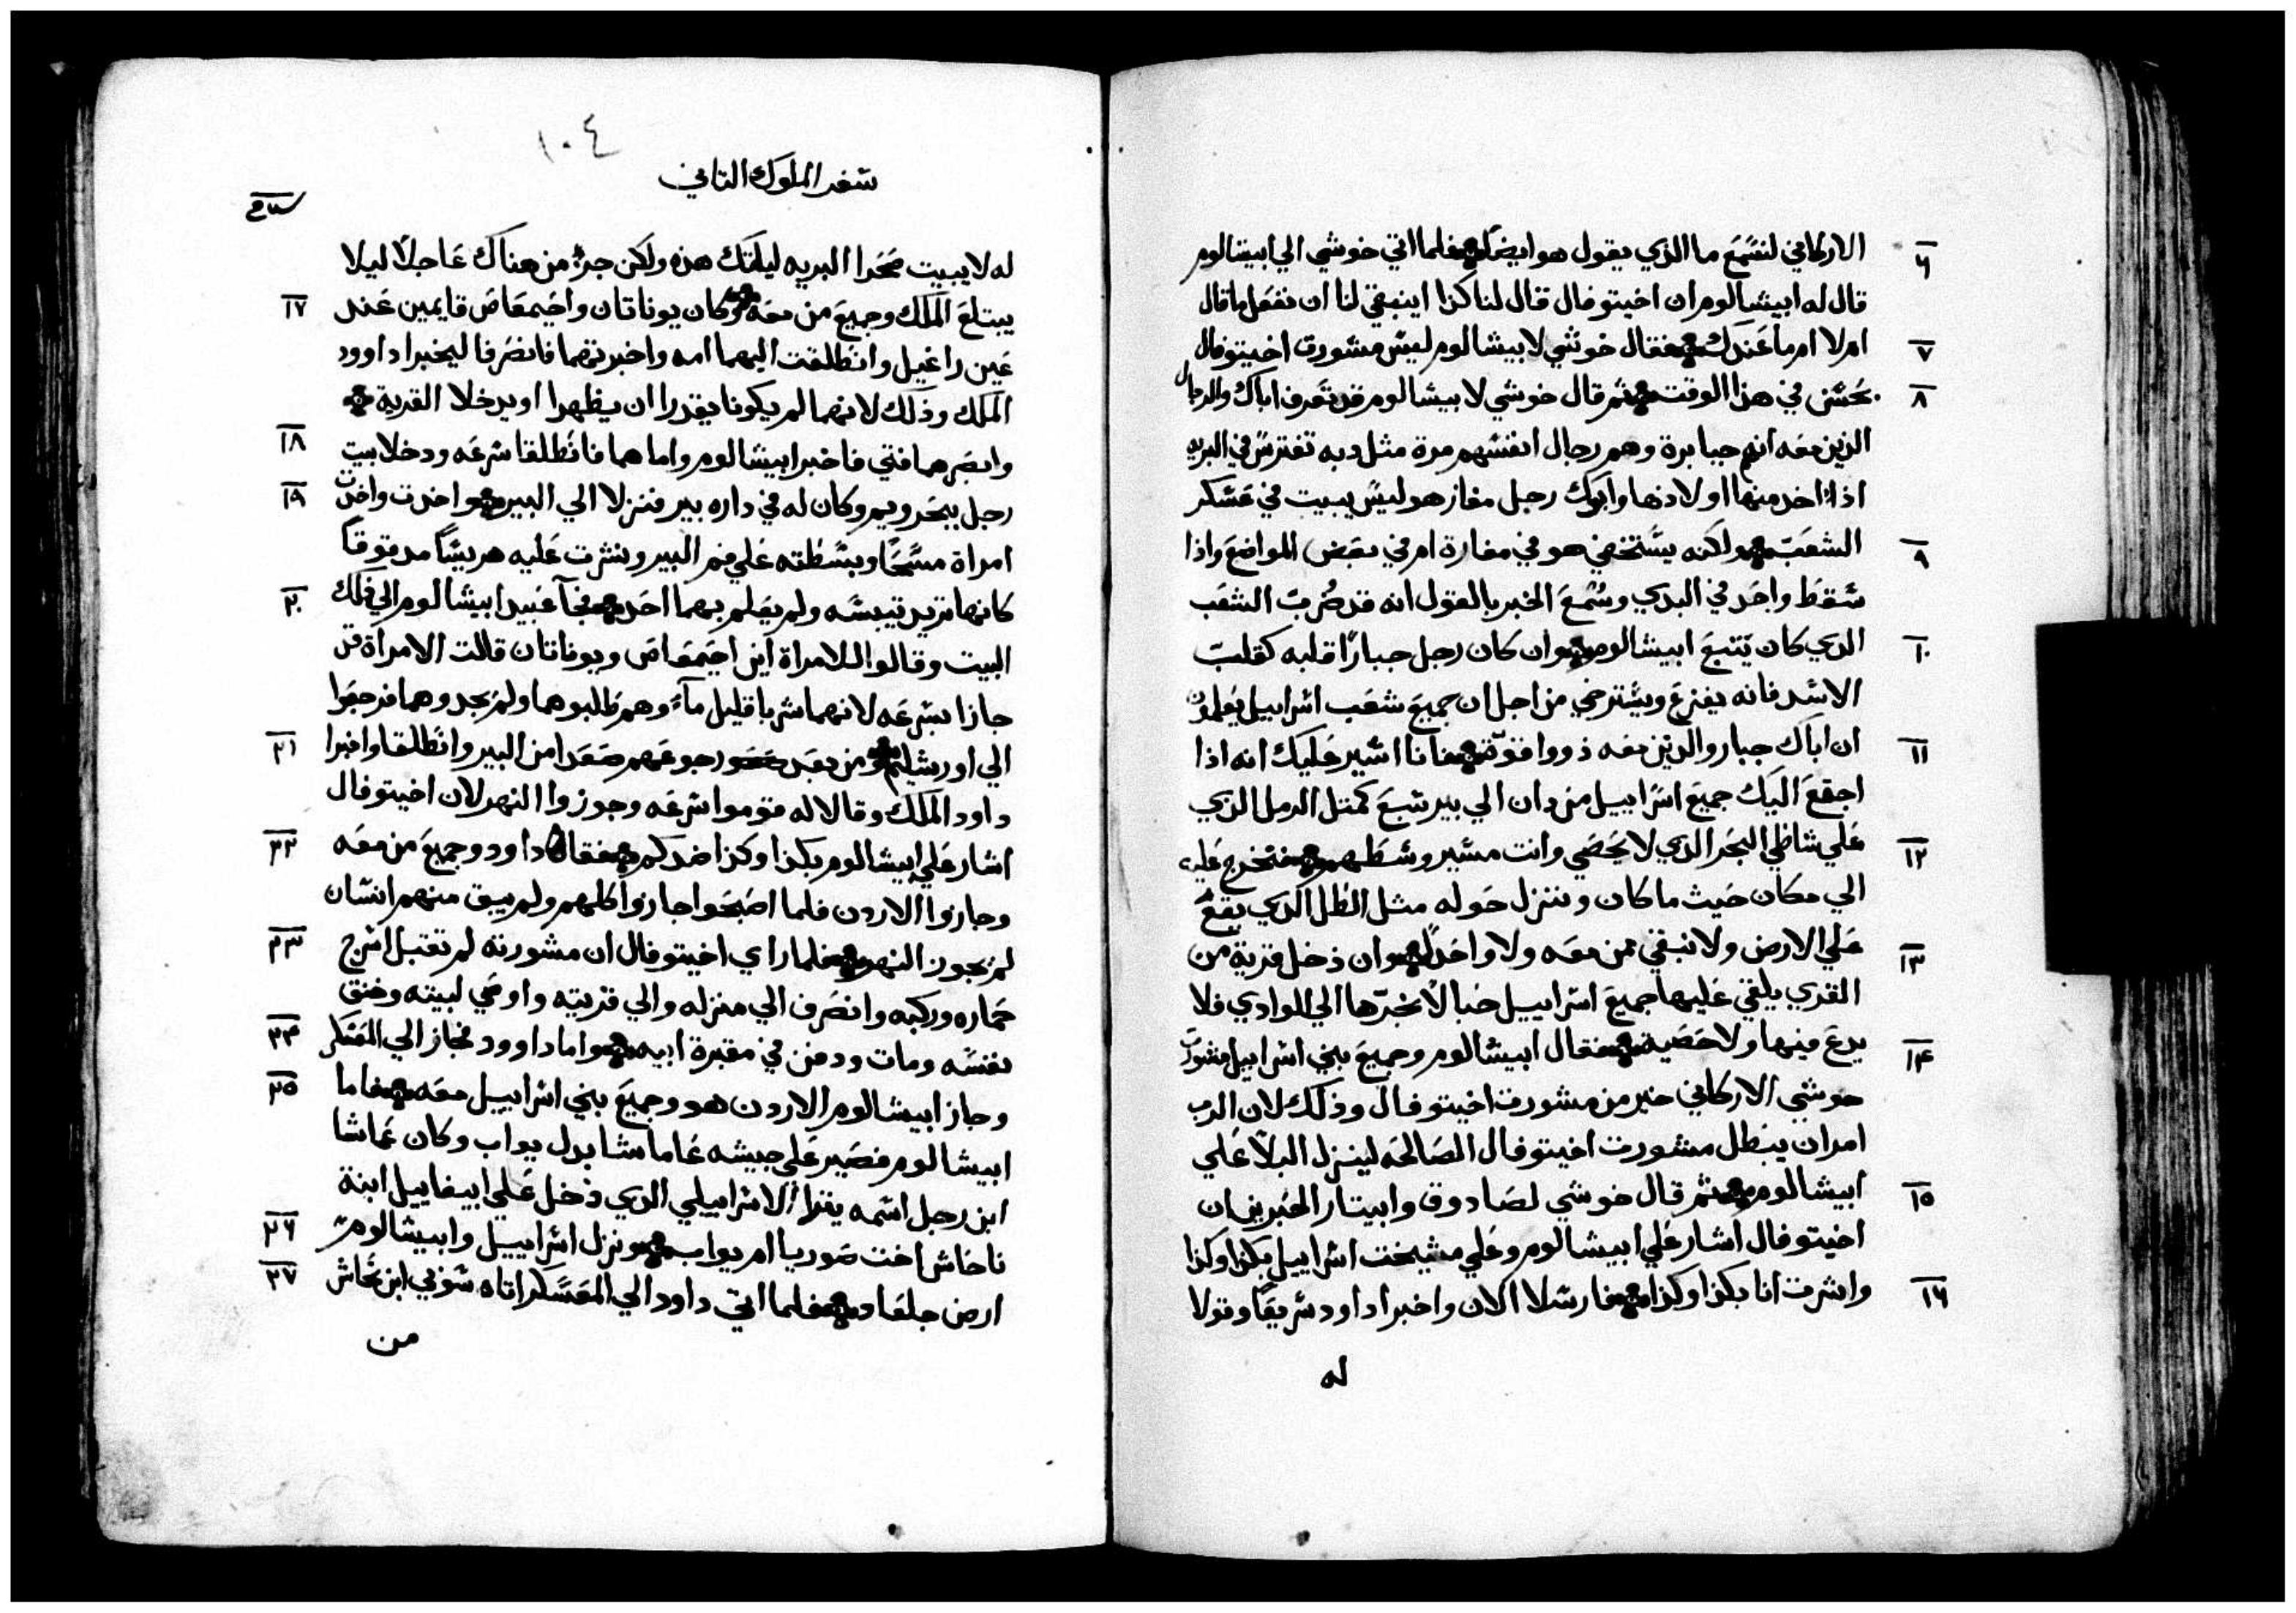 ٦ الاركاني لنسمع ما الذي يقول هو ايضا فلما اتي خوشي الي ابيشالوم
قال له ابيشالوم ان اخيتوفال قال لنا كذا اينبغي لنا ان نفعل ما قال
٧ ام لا ام ما عندك فقال خوشي لابيشالوم ليس مشورت اخيتوفال
٨ بحسن في هذا الوقت ثم قال خوشي لابيشالوم قد تعرف اباك والرجال
الذين معه انهم جبابرة وهم رجال انفسهم مرة مثل دبه تفترس في البريه
اذا اخد منها اولادها وابوك رجل مغاز هو ليس يبيت في عسكر
٩ الشعب ولكنه يستخفي هو في مغارة ام في بعض المواضع واذا
سقط واحد في البدي وسمع الخبر بالقول انه قد ضرب الشعب
١٠ الدي كان يتبع ابيشالوم وان كان رجل جبارا قلبه كقلب
الاسد فانه يفزع ويسترخي من اجل ان جميع شعب اسراييل يعلمون
١١ ان اباك جبار والدين معه ذووا قوة فانا اشير عليك انه اذا
اجتمع اليك جميع اسراييل من دان الي بير شبع كمثل الرمل الذي
١٢ علي شاطي البحر الدي لا يحصي وانت مسير وسطهم فنخرج عليه
الي مكان حيث ما كان وننزل حوله مثل الطل الدي يقع
١٣ علي الارض ولا نبقي ممن معه ولا واحدا وان دخل قرية من
القري يلقي عليها جميع اسراييل حبالا نجرها الي الوادي فلا
١٤ يدع فيها ولا حصية فقال ابيشالوم وجميع بني اسراييل مشورت
حوشي الاركاني خير من مشورت اخيتوفال وذلك لان الرب
امر ان يبطل مشورت اخيتوفال الصالحه لينزل البلا علي
١٥ ابيشالوم ثم قال خوشي لصادوق وابيتار الحبرين ان
اخيتوفال اشار علي ابيشالوم وعلي مشيخت اسراييل بكذا وكذا
١٦ واشرت انا بكذا وكذا فارسلا الان واخبرا داود سريعا وقولا
له
١٠٤
سفر الملوك الثاني
له لا يبيت صحرا البريه ليلتك هذه ولكن جز من هناك عاجلا ليلا
١٧ يبتلع الملك وجميع من معه وكان يوناتان واخيمعاص قايمين عند
عين راغيل وانطلقت اليهما امه واخبرتهما فانصرفا ليخبرا داوود
الملك وذلك لانهما لم يكونا يقدرا ان يظهرا او يدخلا القرية
١٨ وابصرهما فتي فاخبر ابيشالوم واما هما فانطلقا سرعه ودخلا بيت
١٩ رجل ببحرويم وكان له في داره بير فنزلا الي البير واخدت
امراة مسحا وبسطته علي فم البير ونثرت عليه هريسا مدقوقا
٢٠ كانها تريد تيبسه ولم يعلم بهما احد فجآ عبيد ابيشالوم الي ذلك
البيت وقالوا للامراة اين احيمعاص ويوناتان قالت الامراة قد
جازا بسرعه لانهما شربا قليل مآء وهم طلبوهما ولم يجدوهما فرجعوا
٢١ الي اورشليم ومن بعد رجوعهم صعدا من البير وانطلقا واخبرا
داود الملك وقالا له قوموا سرعه وجوزوا النهر لان اخيتوفال
٢٢ اشار علي ابيشالوم بكذا وكذا ضدكم فقام داود وجميع من معه
وجازوا الاردن فلما اصبحوا جازوا كلهم ولم يبق منهم انسان
٢٣ لم يجوز النهر فلما راي اخيتوفال ان مشورته لم تقتبل اسرج
حماره وركبه وانصرف الي منزله والي قريته واوصي لبيته وخنق
٢٤ نفسه ومات ودفن في مقبرة ابيه واما داوود فجاز الي المعسكر
٢٥ وجاز ابيشالوم الاردن هو وجميع بني اسراييل معه فاما
ابيشالوم فصير علي جيشه عاماشا بدل يواب وكان عماشا
ابن رجل اسمه يفترا الاسراييلي الدي دخل علي ابيغاييل ابنة
٢٦ ناحاش اخت صوريا ام يواب ونزل اسراييل وابيشالوم
٢٧ ارض جلعاد فلما اتي داود الي المعسكر اتاه شوفي ابن نحاش
من